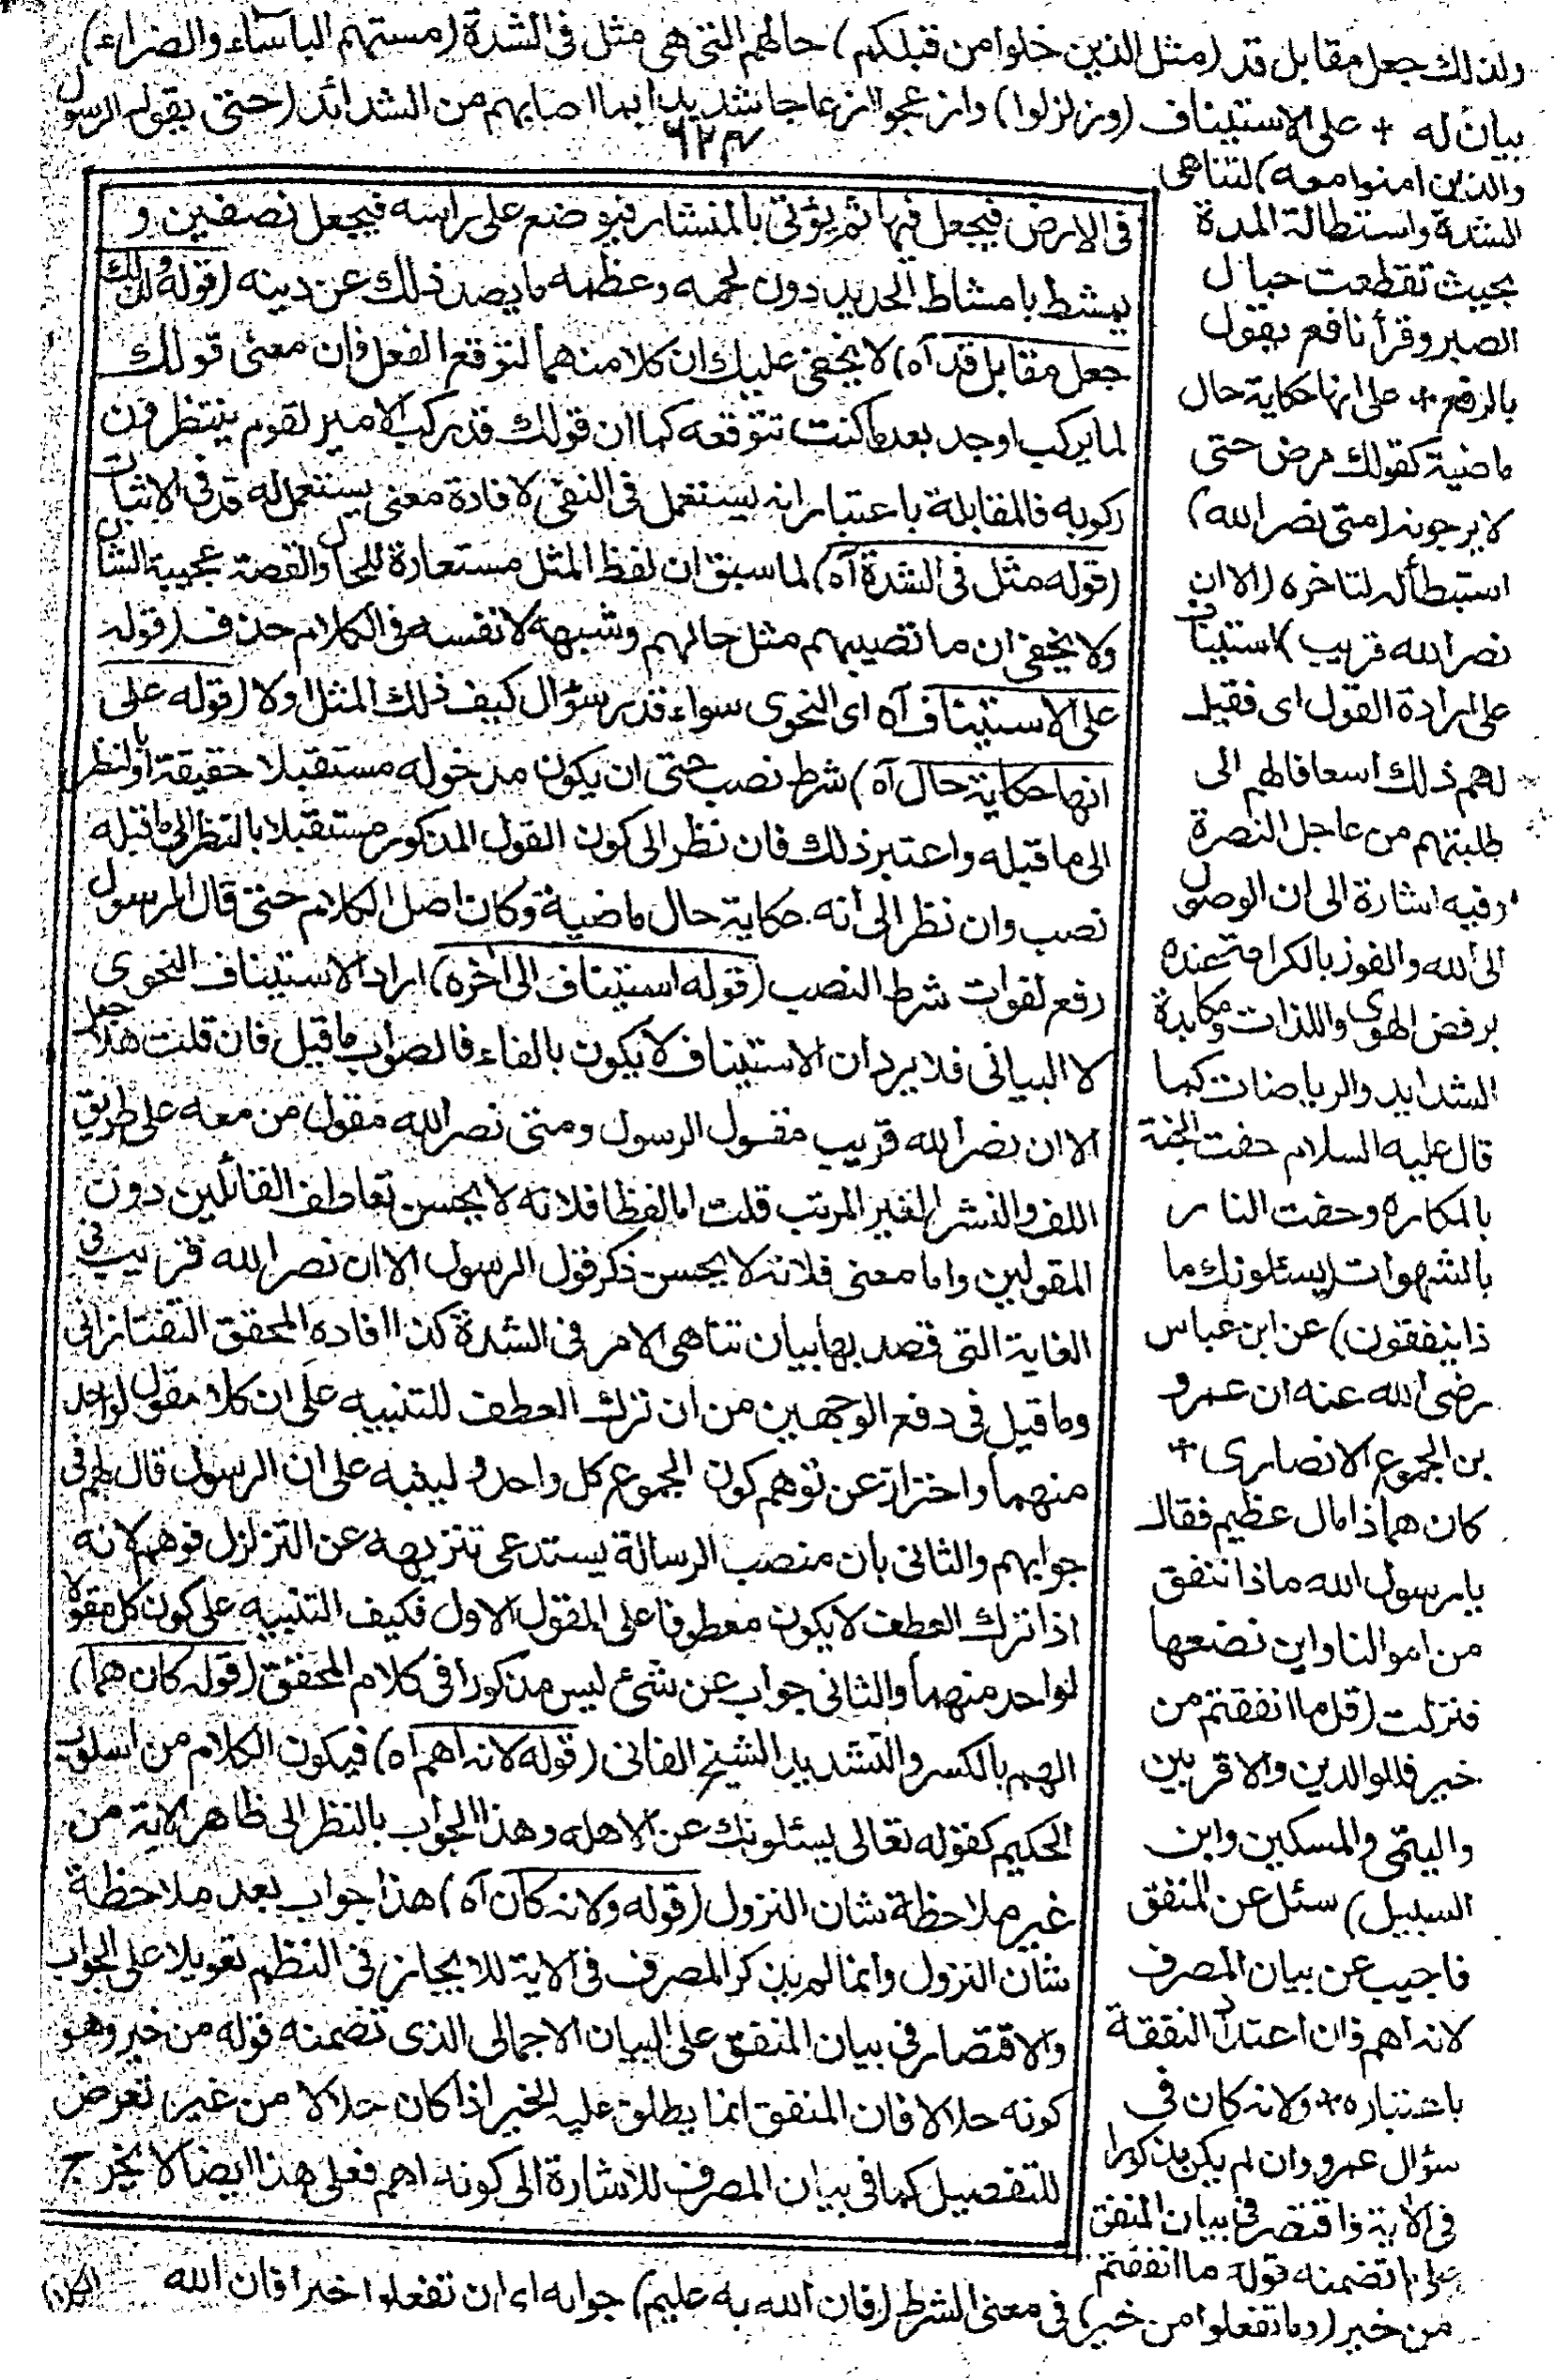 ولذلك جعل مقابل قد (مثل الذين خلوا من قبلكم) حالهم التى هى مثل فى الشدة (مستهم الباساء والضراء)
بيان له + على الاستيناف (وزلزلوا) وازعجوا ازعاجا شديدا بما اصابهم من الشدائد (حتى يقول الرسول
والذين امنوا معه) لتناهى
الشدة واستطالة المدة
بحيث تقطعت حبال
الصبر وقرأ نافع يقول
بالرفع + على انها حكاية حال
ماضية كقولك مرض حتى
لا يرجونه (متى نصر الله)
استبطأ له لتاخره (الا ان
نصر الله قريب) استيناف
على ارادة القول اى فقيل
لهم ذلك اسعافا لهم الى
طلبتهم من عاجل النصرة
وفيه اشارة الى ان الوصول
الى الله والفوز بالكرامة عنده
برفض الهوى واللذات ومكابدة
الشدايد والرياضات كما
قال عليه السلام حفت الجنة
بالمكاره وحفت النار
بالشهوات (يسئلونك ما
ذا ينفقون) عن ابن عباس
رضى الله عنه ان عمرو
بن الجموع الانصارى +
كان هما ذا مال عظيم فقال
يا رسول الله ماذا ننفق
من اموالنا واين نضعها
فنزلت (قل ما انفقتم من
خير فللوالدين والاقربين
واليتمى والمسكين وابن
السبيل) سئل عن المنفق
فاجيب عن بيان المصرف
لانه اهم فان اعتداد النفقة
باعتباره + ولانه كان فى
سؤال عمرو وان لم يكن مذكورا
فى الاية واقتصر فى بيان المنفق
على ما تضمنه قوله ما انفقتم
من خير (وما تفعلوا من خير) فى معنى الشرط (فان الله به عليم) جوابه اى ان تفعلوا خيرا فان الله
فى الارض فيجعل فيها ثم يؤتى بالمنشار فيوضع على راسه فيجعل نصفين و
يمشط بامشاط الحديد دون لحمه وعظمه ما يصد ذلك عن دينه (قوله ولذلك
جعل مقابل قد آه) لا يخفى عليك ان كلا منهما لتوقع الفعل فان معنى قولك
لما يركب اوجد بعد ما كنت تتوقعه كما ان قولك قد ركب الامير لقوم ينتظرون
ركوبه فالمقابلة باعتبار انه يستعمل فى النفى لافادة معنى يستعمل له قد فى الاثبات
(قوله مثل فى الشدة آه) لما سبق ان لفظ المثل مستعارة للحال والقصة عجيبة الشان
ولا يخفى ان ما تصيبهم مثل حالهم وشبهه لا نفسه فى الكلام حذف (قوله
على الاستيناف آه اى النحوى سواء قدر سؤال كيف ذلك المثل اولا (قوله على
انها حكاية حال آه) شرط نصب حتى ان يكون مدخوله مستقبلا حقيقة او بالنظر
الى ما قبله واعتبر ذلك فان نظر الى كون القول المذكور مستقبلا بالنظر الى ما قبله
نصب وان نظر الى انه حكاية حال ماضية وكان اصل الكلام حتى قال الرسول
رفع لفوات شرط النصب (قوله استيناف الى آخره) اراد الاستيناف النحوى
لا البيانى فلا يرد ان الاستيناف لا يكون بالفاء فالصواب ما قيل فان قلت هلا جعل
الا ان نصر الله قريب مقول الرسول ومتى نصر الله مقول من معه على طريق
اللف والنشر الغير المرتب قلت اما لفظا فلانه لا يحسن تعاطف القائلين دون
المقولين واما معنى فلانه لا يحسن ذكر قول الرسول الا ان نصر الله قريب فى
الغاية التى قصد بها بيان تناهى الامر فى الشدة كذا افاده المحقق التفتازانى
وما قيل فى دفع الوجهين من ان ترك العطف للتنبيه على ان كلا مقول لواحد
منهما واحترازا عن توهم كون المجموع كل واحد و لينبه على ان الرسول قال لهم فى
جوابهم والثانى بان منصب الرسالة يستدعى تنزيهه عن التزلزل فوهم لانه
اذا ترك العطف لا يكون معطوفا على المقول الاول فكيف التنبيه على كون كل مقولا
لواحد منهما والثانى جواب عن شئ ليس مذكورا فى كلام المحقق (قوله كان هما)
الهم بالكسر والتشديد الشيخ الفانى (قوله لانه اهم اه) فيكون الكلام من اسلوب
الحكيم كقوله تعالى يسئلونك عن الاهلة وهذا الجواب بالنظر الى ظاهر الاية من
غير ملاحظة شان النزول (قوله ولانه كان آه) هذا جواب بعد ملاحظة
شان النزول وانما لم يذكر المصرف فى الاية للايجاز فى النظم تعويلا على الجواب
والاقتصار فى بيان المنفق على البيان الاجمالى الذى تضمنه قوله من خير وهو
كونه حلالا فان المنفق انما يطلق عليه الخير اذا كان حلالا من غير تعرض
للتفصيل كما فى بيان المصرف للاشارة الى كونه اهم فعلى هذا ايضا لا يخرج